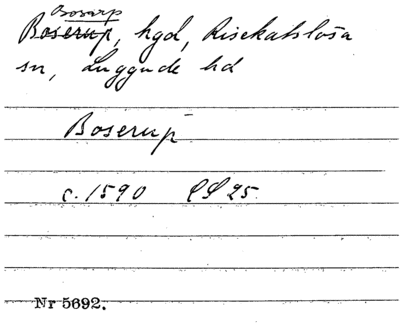 Bosarp
Boserup, hgd, Risekatslösa
sn, Luggude hd
Boserup
c. 1590 PS 25.
Nr 5692.